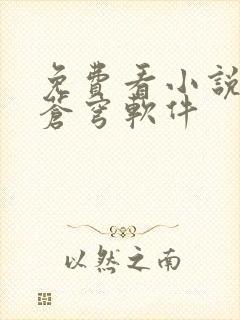 免費看小說
蒼穹軟件
以然之南